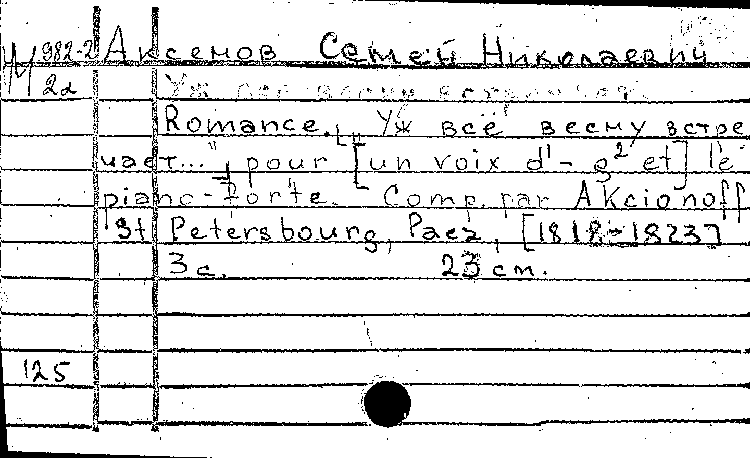 М 982-2 Аксенов Семен Николаевич
2а Уж всё весну встречает.
Romance. [„Уж всё весну встре
чает..."], pour [un voix d¹- g² et] le
piano-forte. Comp. par AKcionoff
St Petersbourg, Paez, [1818-1823]
3 с. 23 cm.
125